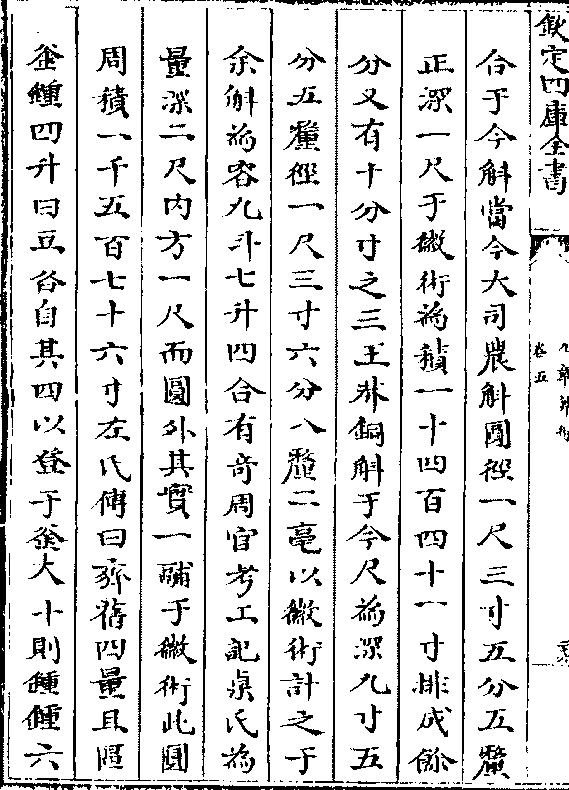 欽定四庫全書
九章算術
卷五
合于今斛當今大司農斛圓徑一尺三寸五分五釐
正深一尺于徽術為積一十四百四十一寸排成餘
分又有十分寸之三王莽銅斛于今尺為深九寸五
分五釐徑一尺三寸六分八釐二毫以徽術計之于
余斛為容九斗七升四合有奇周官考工記㮚氏為
量深二尺内方一尺而圓外其實一鬴于徽術此圓
周積一千五百七十六寸左氏傳曰齊舊四量豆區
釜鍾四升曰豆各自其四以登于釜大十則鍾鍾六